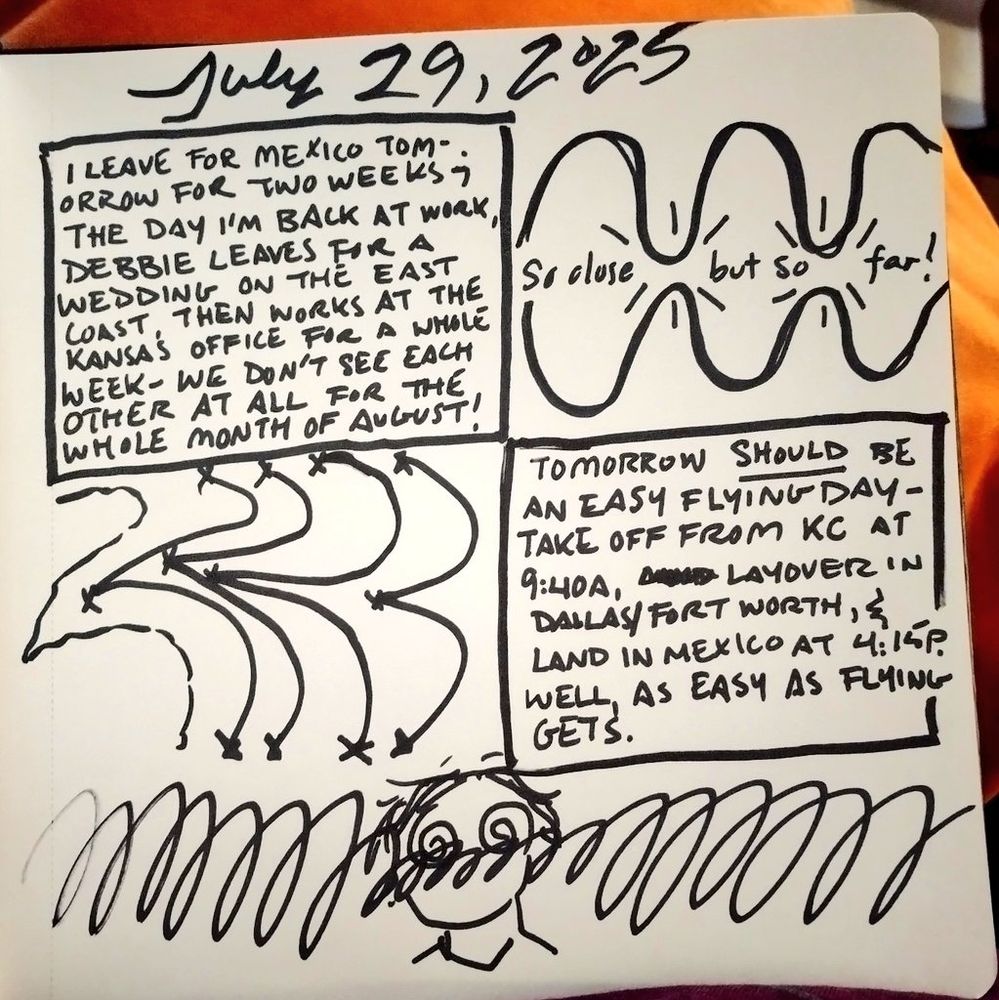 July 29, 2025
I LEAVE FOR MEXICO TOM-
ORROW FOR TWO WEEKS;
THE DAY I'M BACK AT WORK,
DEBBIE LEAVES FOR A
WEDDING ON THE EAST
COAST, THEN WORKS AT THE
KANSAS OFFICE FOR A WHOLE
WEEK- WE DON'T SEE EACH
OTHER AT ALL FOR THE
WHOLE MONTH OF AUGUST!
So close but so far!
TOMORROW SHOULD BE
AN EASY FLYING DAY-
TAKE OFF FROM KC AT
9:40A, LAYOVER IN
DALLAS/FORT WORTH, &
LAND IN MEXICO AT 4:15P.
WELL, AS EASY AS FLYING
GETS.